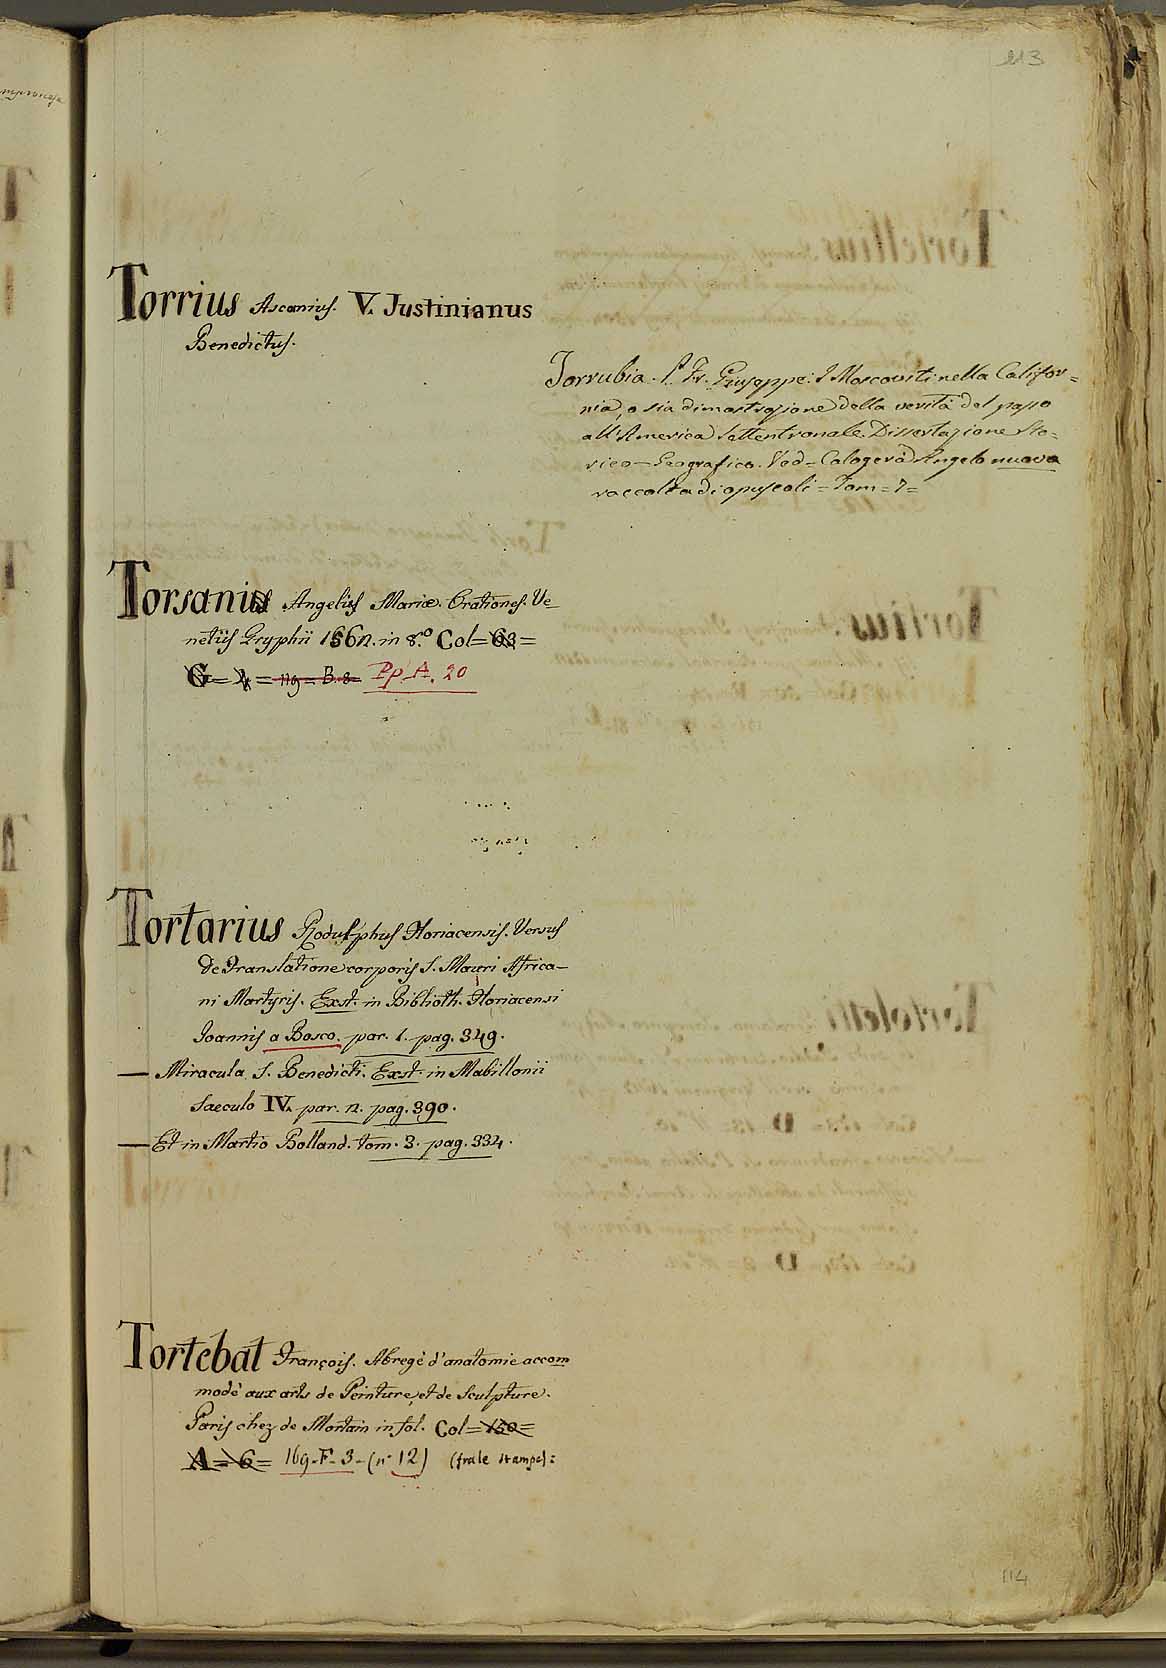 113
Torrius Ascanius. V. Justinianus
Benedictus.
Torrubia. P. Fr. Giuseppe: I Moscoviti nella Califor=
nia, o sia dimostrazione della verità del passo
all'America Settentrionale. Dissertazione Sto=
rico-Geografica. Ved= Calogerà Angelo nuova
raccolta di opuscoli = Tom= 7=
Torsanius Angelus Mariæ. Orationes. Ve-
netiis Gryphii 1562. in 8.º Col= 68=
G= 4= 119= B. 8= Pp. A. 20
Tortarius Rodulphus Floriacensis. Versus
de Translatione corporis S. Mauri Africa-
ni Martyris. Exst. in Biblioth. Floriacensi
Joannis a Bosco. par. 1. pag. 349.
— Miracula S. Benedicti. Exst. in Mabillonii
Saeculo IV. par. 2. pag. 390.
— Et in Martio Bolland. tom. 3. pag. 334.
Tortebat François. Abregé d'anatomie accom
modé aux arts de Peinture, et de Sculpture.
Paris chez de Mortain in fol. Col= 150=
A= 6= 169-F-3-(nº 12) (fra le stampe)=
114